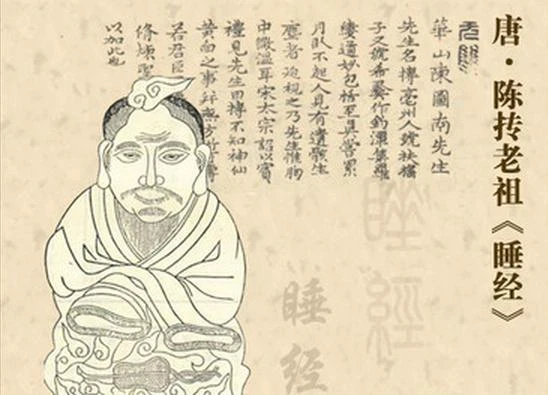 唐·陈抟老祖《睡经》
華山陳圖南先生
先生名摶亳州人號扶搖
子又號希夷作釣潭集羅
縷道妙包括至真嘗累
月臥不起人見有遺骸生
塵者迫視之乃先生惟胸
中微溫耳宋太宗詔以賓
禮見先生因摶不知神仙
黃白之事
若君臣
修煉
以加此也
睡經
睡经